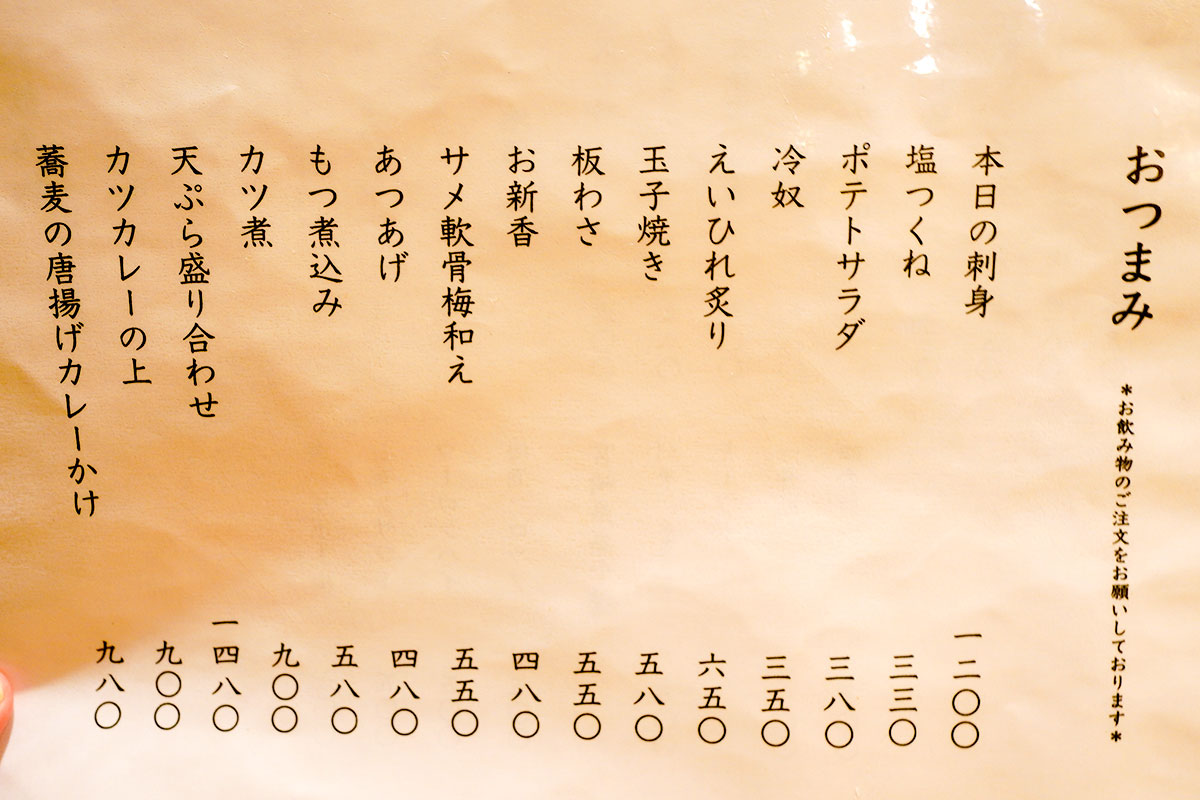 おつまみ
*お飲み物のご注文をお願いしております*
本日の刺身 一二〇〇
塩つくね 三三〇
ポテトサラダ 三八〇
冷奴 三五〇
えいひれ炙り 六五〇
玉子焼き 五八〇
板わさ 五五〇
お新香 四八〇
サメ軟骨梅和え 五五〇
あつあげ 四八〇
もつ煮込み 五八〇
カツ煮 九〇〇
天ぷら盛り合わせ 一四八〇
カツカレーの上 九〇〇
蕎麦の唐揚げカレーかけ 九八〇